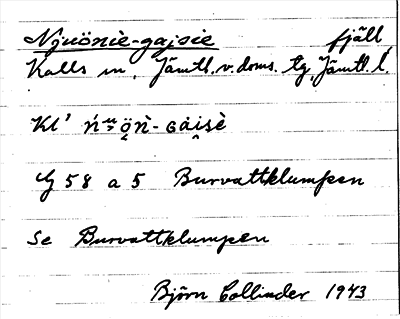 Njuönie-gajsie fjäll
Kalls sn, Jämtl.v.doms. tg, Jämtl. l.
Kl'
G 58 a 5 Burvattklumpen
Se Burvattklumpen
Björn Collinder 1943